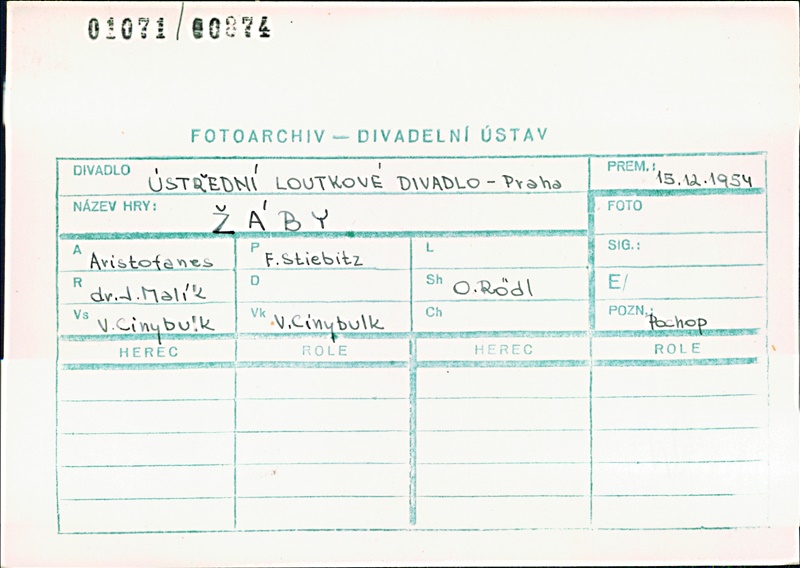 01071/00874
FOTOARCHIV – DIVADELNÍ ÚSTAV
DIVADLO ÚSTŘEDNÍ LOUTKOVÉ DIVADLO - Praha PREM.: 15.12.1954
NÁZEV HRY: ŽÁBY FOTO
A Aristofanes P F. Stiebitz L SIG.:
R dr. J. Malík D Sh O. Rödl E/
Vs V. Cinybulk Vk V. Cinybulk Ch POZN.: Pochop
HEREC ROLE HEREC ROLE